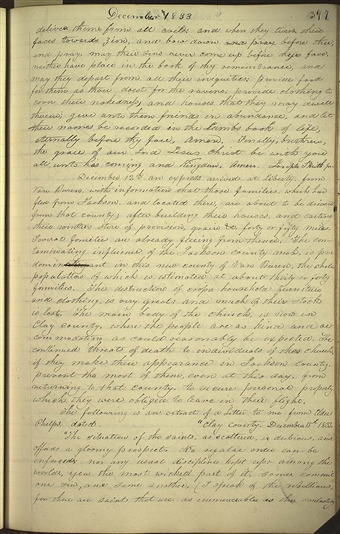 December 1833
391
deliver them from all evils and when they turn their
faces towards Zion, and bow down and praise before thee,
and pray, may their sins never come up before thy face,
neither have place in the book of thy remembrance, and
may they depart from all their iniquities provide food
for them as thou doest for the ravens, provide clothing to
cover their nakedness and houses that they may dwell
therein, give unto them friends in abundance, and let
their names be recorded in the Lambs book of life,
eternally before thy face, Amen. Finally, brethren,
the grace of our Lord Jesus Christ be with you
all unto his coming and Kingdom. Amen. Joseph Smith jr.
December 12th an express arrived at Liberty, from
Van Buren, with information that those families, which had
fled from Jackson, and located there, are about to be driven
from that county, after building their houses, and carting
their winters store of provision, grain &c forty or fifty miles.
Several families are already fleeing from thence. The con-
taminating influence of the Jackson county mob, is pre
dominant in this new county of Van Buren, the whole
population of which is estimated at about thirty or forty
families. The destruction of crops household furniture
and clothing, is very great, and much of their stock
is lost. The main body of the church, is now in
Clay county, where the people are as kind and ac-
commodating, as could reasonably be expected. The
continued threats of death to individuals of this church
if they make their appearance in Jackson county
prevent the most of them, even at this day, from
returning to that county, to secure personal property
which they were obliged to leave in their flight.
The following is an extract of a letter to me from Elder
Phelps, dated "Clay County. December 15th 1833.
The situation of the saints, as scattered, is dubious, and
affords a gloomy prospect. No regular order can be
enforced nor any usual discipline kept up; among the
world, yea, the most wicked part of it, some commit
one sin, and some another, (I speak of the rebellious,
for there are saints that are as immoveable as the everlasting